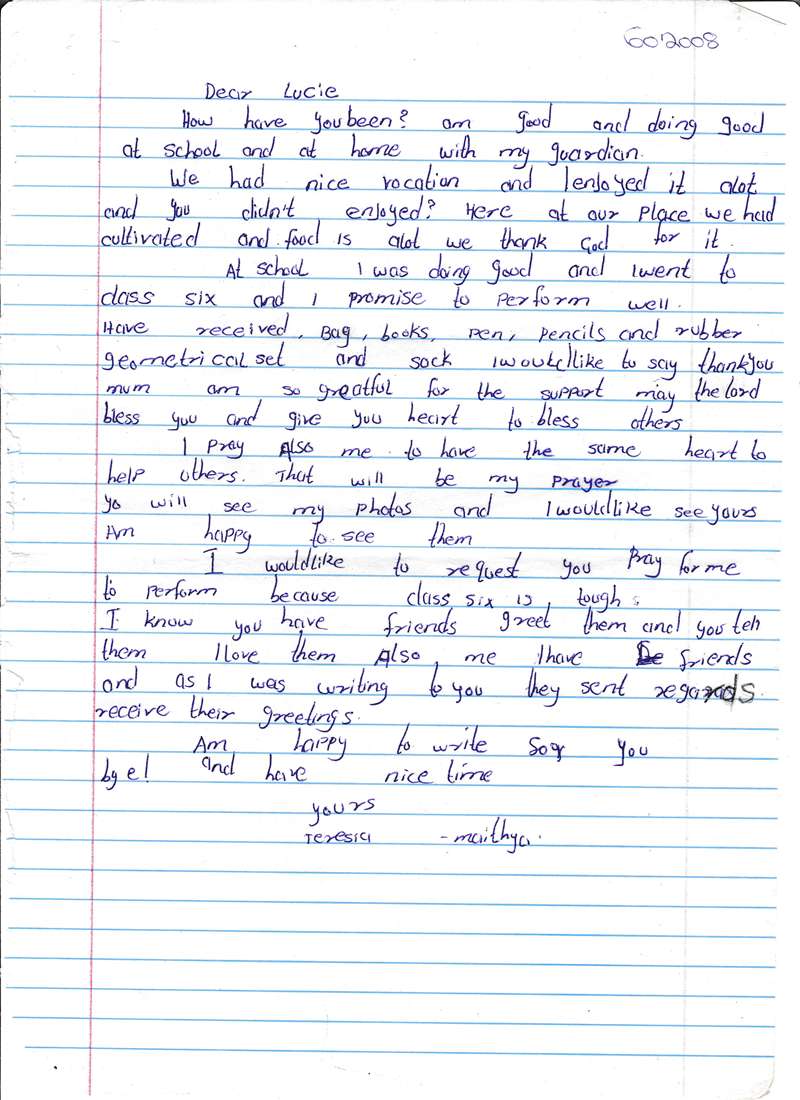 602008
Dear Lucie
How have you been? am good and doing good
at school and at home with my guardian.
We had nice vocation and I enjoyed it alot
and you didn't enjoyed? Here at our place we had
cultivated and food is alot we thank God for it.
At school I was doing good and I went to
class six and I promise to perform well.
Have received, Bag, books, pen, pencils and rubber
geometrical set and sock I would like to say thank you
mum am so greatful for the support may the lord
bless you and give you heart to bless others
I pray Also me to have the same heart to
help others. That will be my prayer
Yo will see my photos and I would like see yours
Am happy to see them
I would like to request you Pray for me
to perform because class six is tough.
I know you have friends greet them and you tell
them I love them Also, me I have friends
and as I was writing to you they sent regards.
receive their greetings.
Am happy to write you
bye! and have nice time
yours
Teresia - maithya.